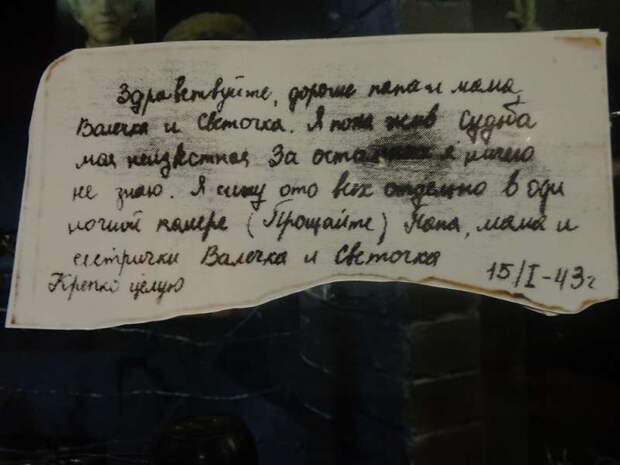 Здравствуйте, дорогие папа и мама,
Валечка и Светочка. Я пока жив Судьба
моя неизвестная За остальных я ничего
не знаю. Я сижу ото всех отдельно в оди
ночной камере (Прощайте) Папа, мама и
сестрички Валечка и Светочка
Крепко целую 15/I-43г